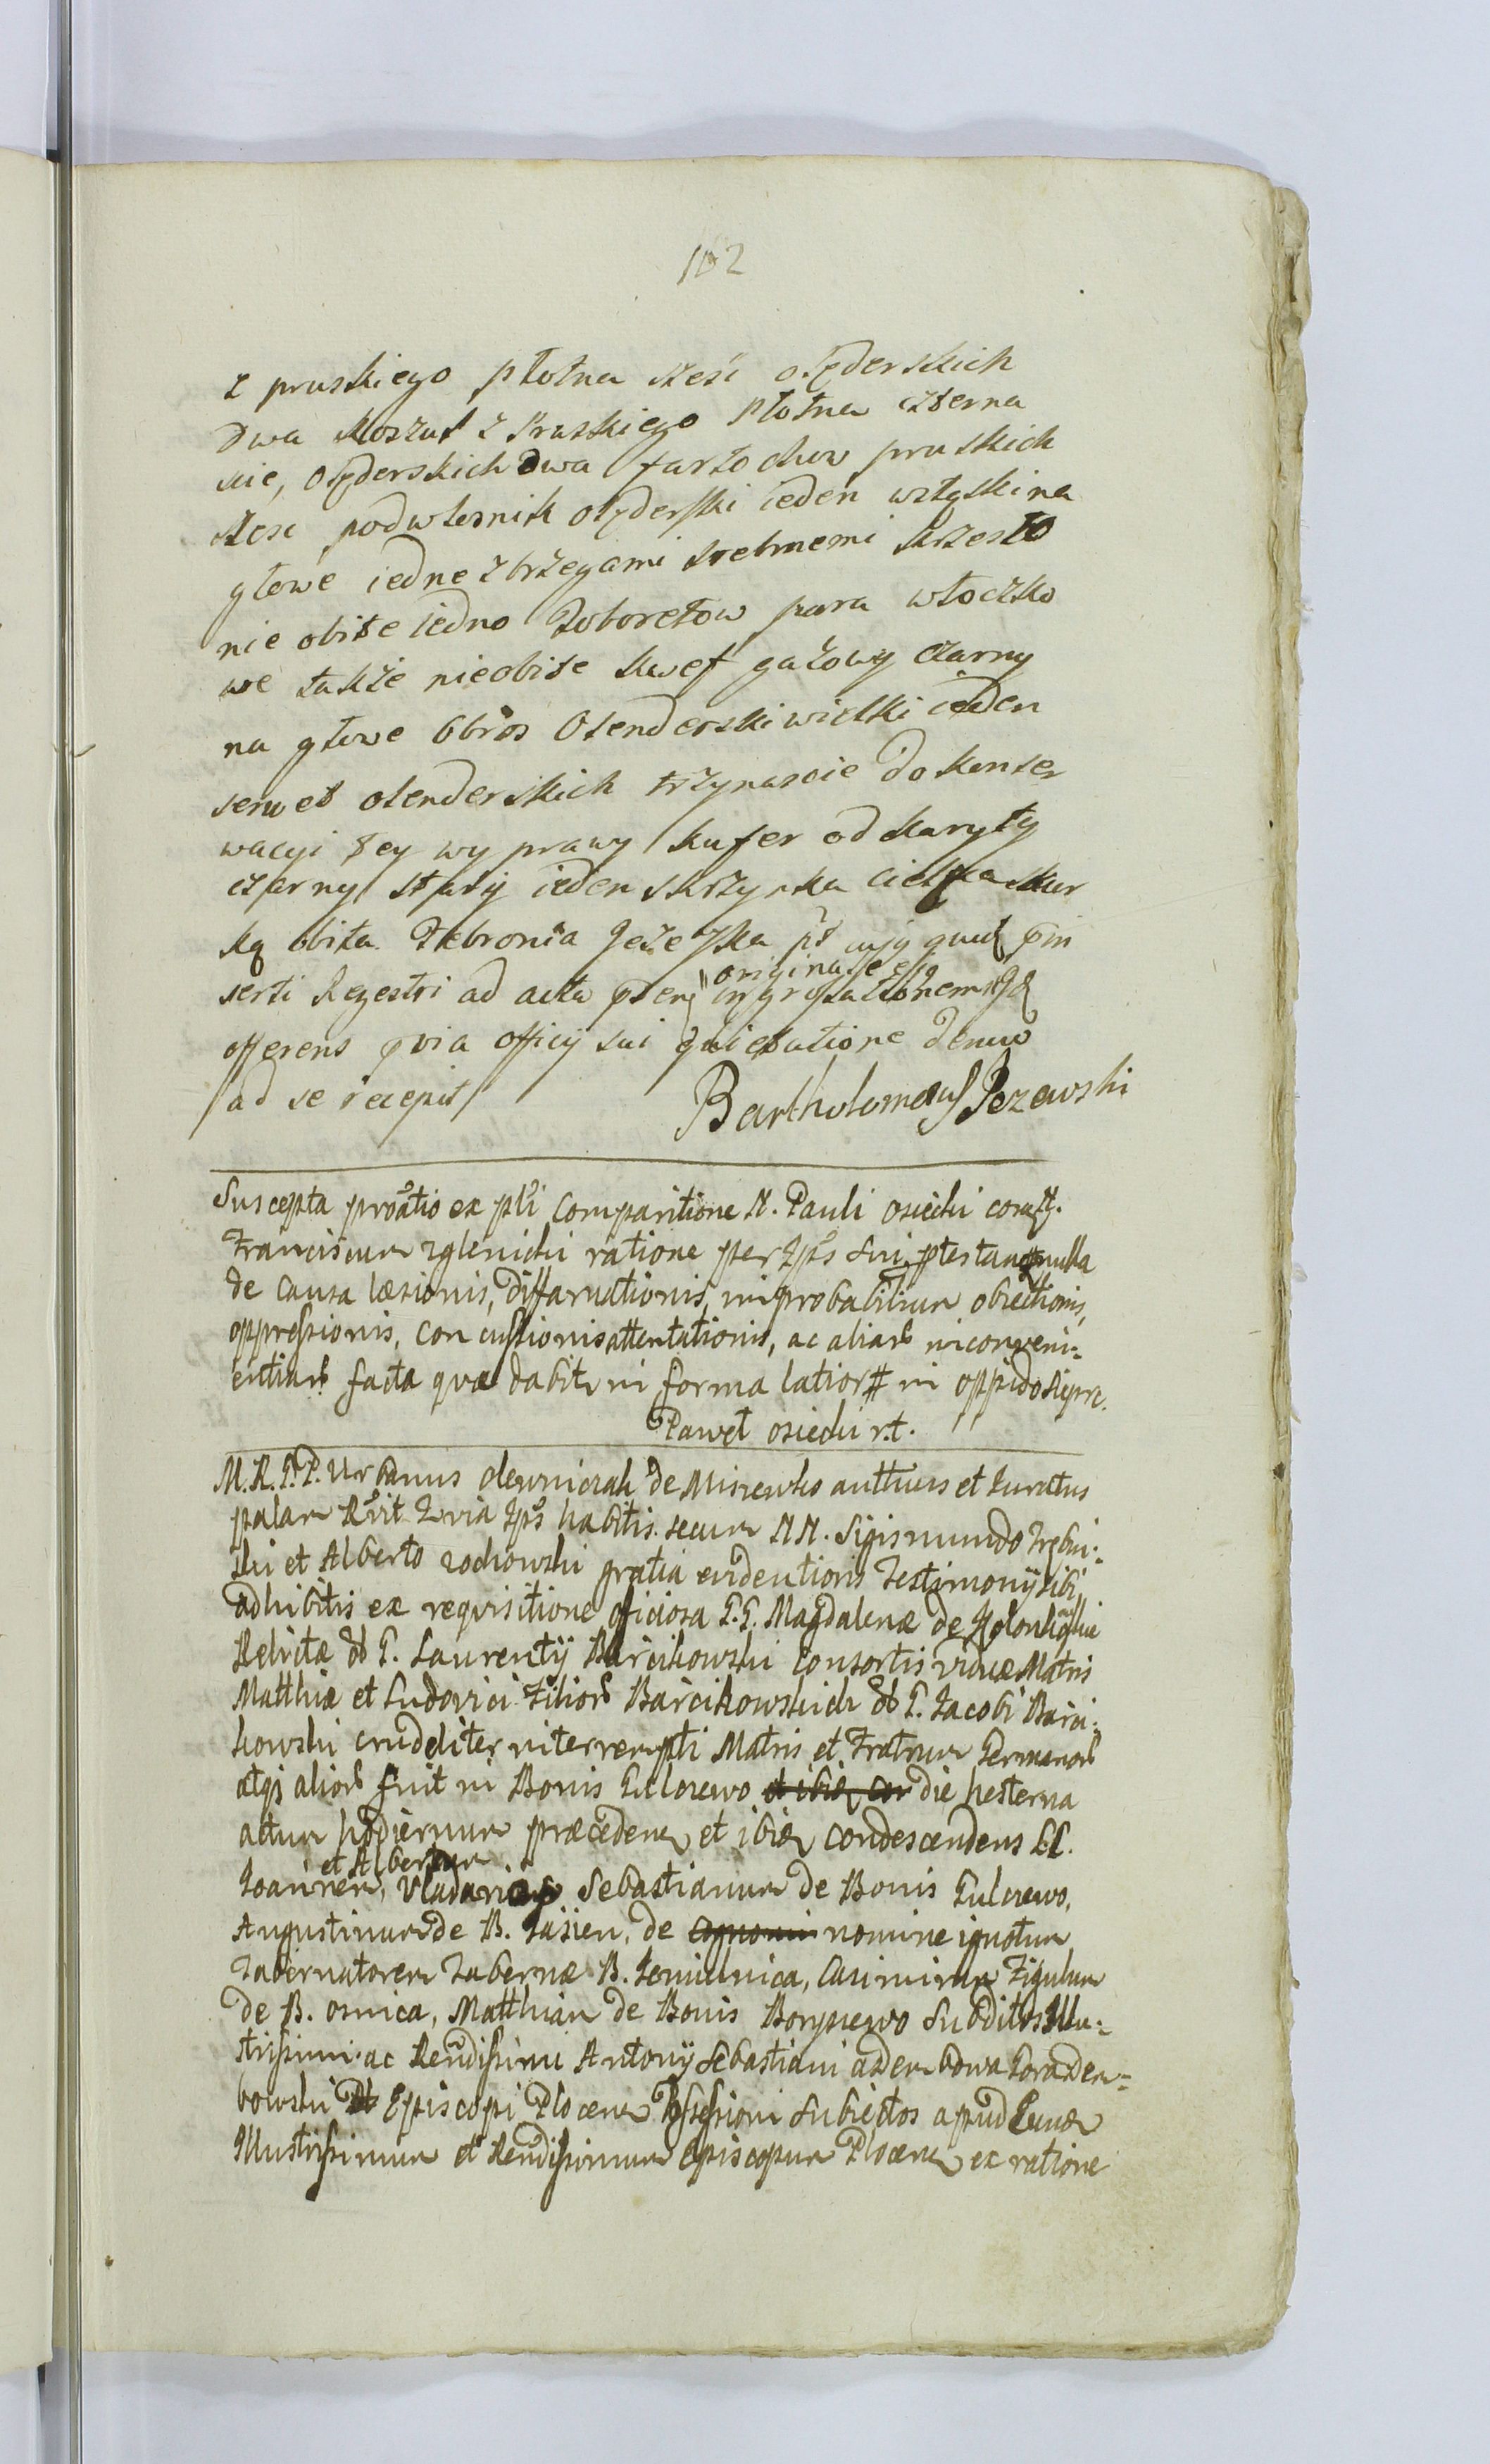 102
z pruskiego płotna sześć olęderskich
dwa koszul z Pruskiego płotna czterna
scie, olęderskich dwa fartochow pruskich
szesc podwłosnik olęderski ieden wstąski na
głowe iedne z brzegami srebrnemi krzesło
nie obite iedno Toboretow para włoczko
we także nieobite kwef gazowy czarny
na głowe Obrós Olenderski wielki ieden
serwet olenderskich trzynascie do konser
wacyi tey wyprawy kufer od karyty
czarny stary ieden skrzynka cielęca skur
ką obita Zebronia Jeżewska
serti Regestri ad acta originale ingrossationem
offerens ovia officij sui quietatione denuo
ad se recepit Bartholomæus Jezewski
Suscepta proatio ex pti Comparitione N. Pauli osiecki
Franciscum zglenicki ratione per Ipss sui ptestang
de Causa læsionis, Diffamationis, improbabilium obiectionis,
oppressionis, concussionis attentationis, ac aliars inconveni-
entiars facta quæ dabitr in forma latiori in oppido Sieprc.
Paweł osiecki r.t.
M.R.P.P. Urbanus de Misiewko authcus et Iuratus
palam Rvit Zvia Ips habitis secum NN. Sigismundo Trębin-
ski et Alberto zochowski gratia evidentioris Testimonij sibi
adhibitis ex requisitione officiosa G.G. Magdalenæ de
Relictæ G. Laurentij Barcikowski Consortis viduæ Matris
Matthiæ et Ludovici Filiors Barcikowskich G. Jacobi Barci-
kowski crudeliter interrempti Matris et Fratrum Germanors
atqs aliors fuit in Bonis Gulczewo et ibiq con die hesterna
actum hodiernum præceden et ibiq condescendens LL.
Ioannem, et Albertum Sebastianum de Bonis Gulczewo,
Augustinum de B. Jasien, de cognomi nomine ignotum
Tabernatorem Tabernæ B. Casimirum Figulum
de B. osnica, Matthiam de Bonis Boryszewo Subditos Illu-
strissimi ac Rendissimi Antonij Sebastiani a Dembowa Gora Dem-
bowski Episcopi Plocen Possessioni Subiectos apud Eund
Illustrissimum et Rendissimum Episcopum Plocen ex ratione